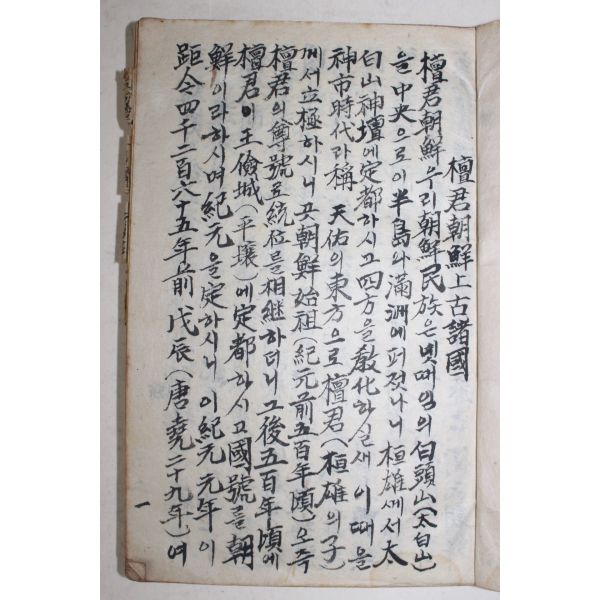 檀君朝鮮上古諸國
檀君朝鮮 우리朝鮮民族은 녯때임의 白頭山(太白山)
을 中央으로이 半島와 滿洲에 퍼젓나니 桓雄께서 太
白山神壇에 定都하시고 四方을 敎化하실새 이때을
神市時代라 稱 天佑의 東方으로 檀君(桓雄의 子)
께서 立極하시니 곳 朝鮮始祖(紀元前五百年頃)오 즉
檀君의 尊號로 統位를 相繼하더니 그後五百年頃에
檀君이 王儉城(平壤)에 定都하시고 國號를 朝
鮮이라하시며 紀元을 定하시니 이 紀元元年이
距今四千二百六十五年前戊辰(唐堯二十九年)여
一